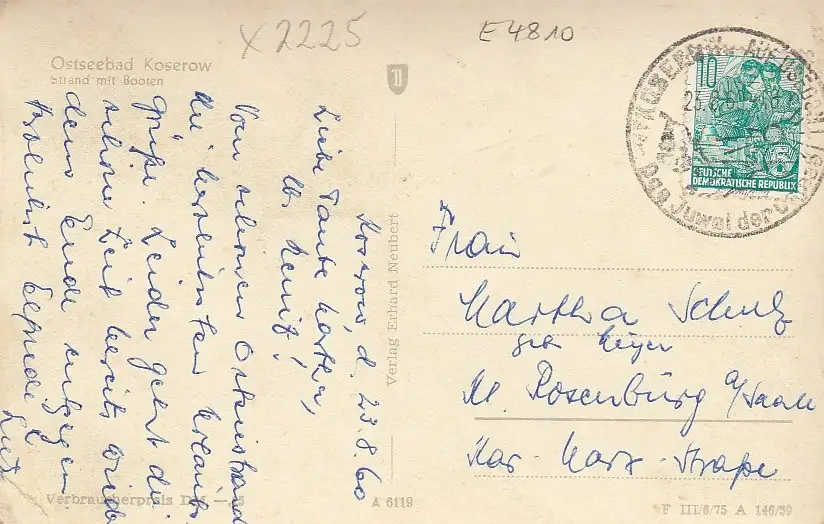 x2225
E4810
Ostseebad Koserow
Strand mit Booten
Koserow, d. 23.8.60
Liebe Tante Martha,
lb. Heinz!
Vom schönen Ostseestrand
die herzlichsten Urlaubs-
grüße. Leider geht die
schöne Zeit bereits wieder
dem Ende entgegen.
Herzlichst
Verlag Erhard Neubert
Verbraucherpreis DM
A 6119
F III/6/75 A 146/59
10
5
DEUTSCHE
DEMOKRATISCHE REPUBLIK
Das Juwel der
Frau
Martha Schulz
geb. Meyer
Kl. Rosenburg a/Saale
Kar-Marx-Straße